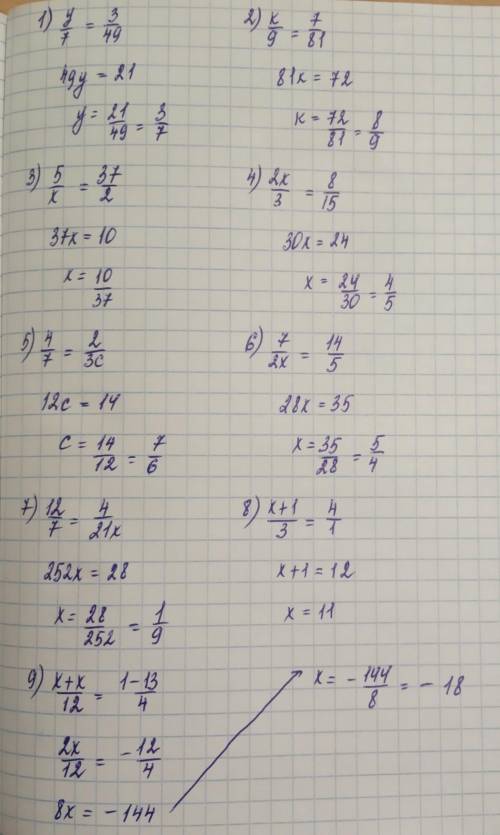 1) y/7 = 3/49
49y = 21
y = 21/49 = 3/7
2) x/9 = 7/81
81x = 72
x = 72/81 = 8/9
3) 5/x = 37/2
37x = 10
x = 10/37
4) 2x/3 = 8/15
30x = 24
x = 24/30 = 4/5
5) 4/7 = 2/3c
12c = 14
c = 14/12 = 7/6
6) 7/2x = 14/5
28x = 35
x = 35/28 = 5/4
7) 12/7 = 4/21x
252x = 28
x = 28/252 = 1/9
8) x+1/3 = 4/1
x+1 = 12
x = 11
9) x+x/12 = 1-13/4
2x/12 = -12/4
8x = -144
x = -144/8 = -18